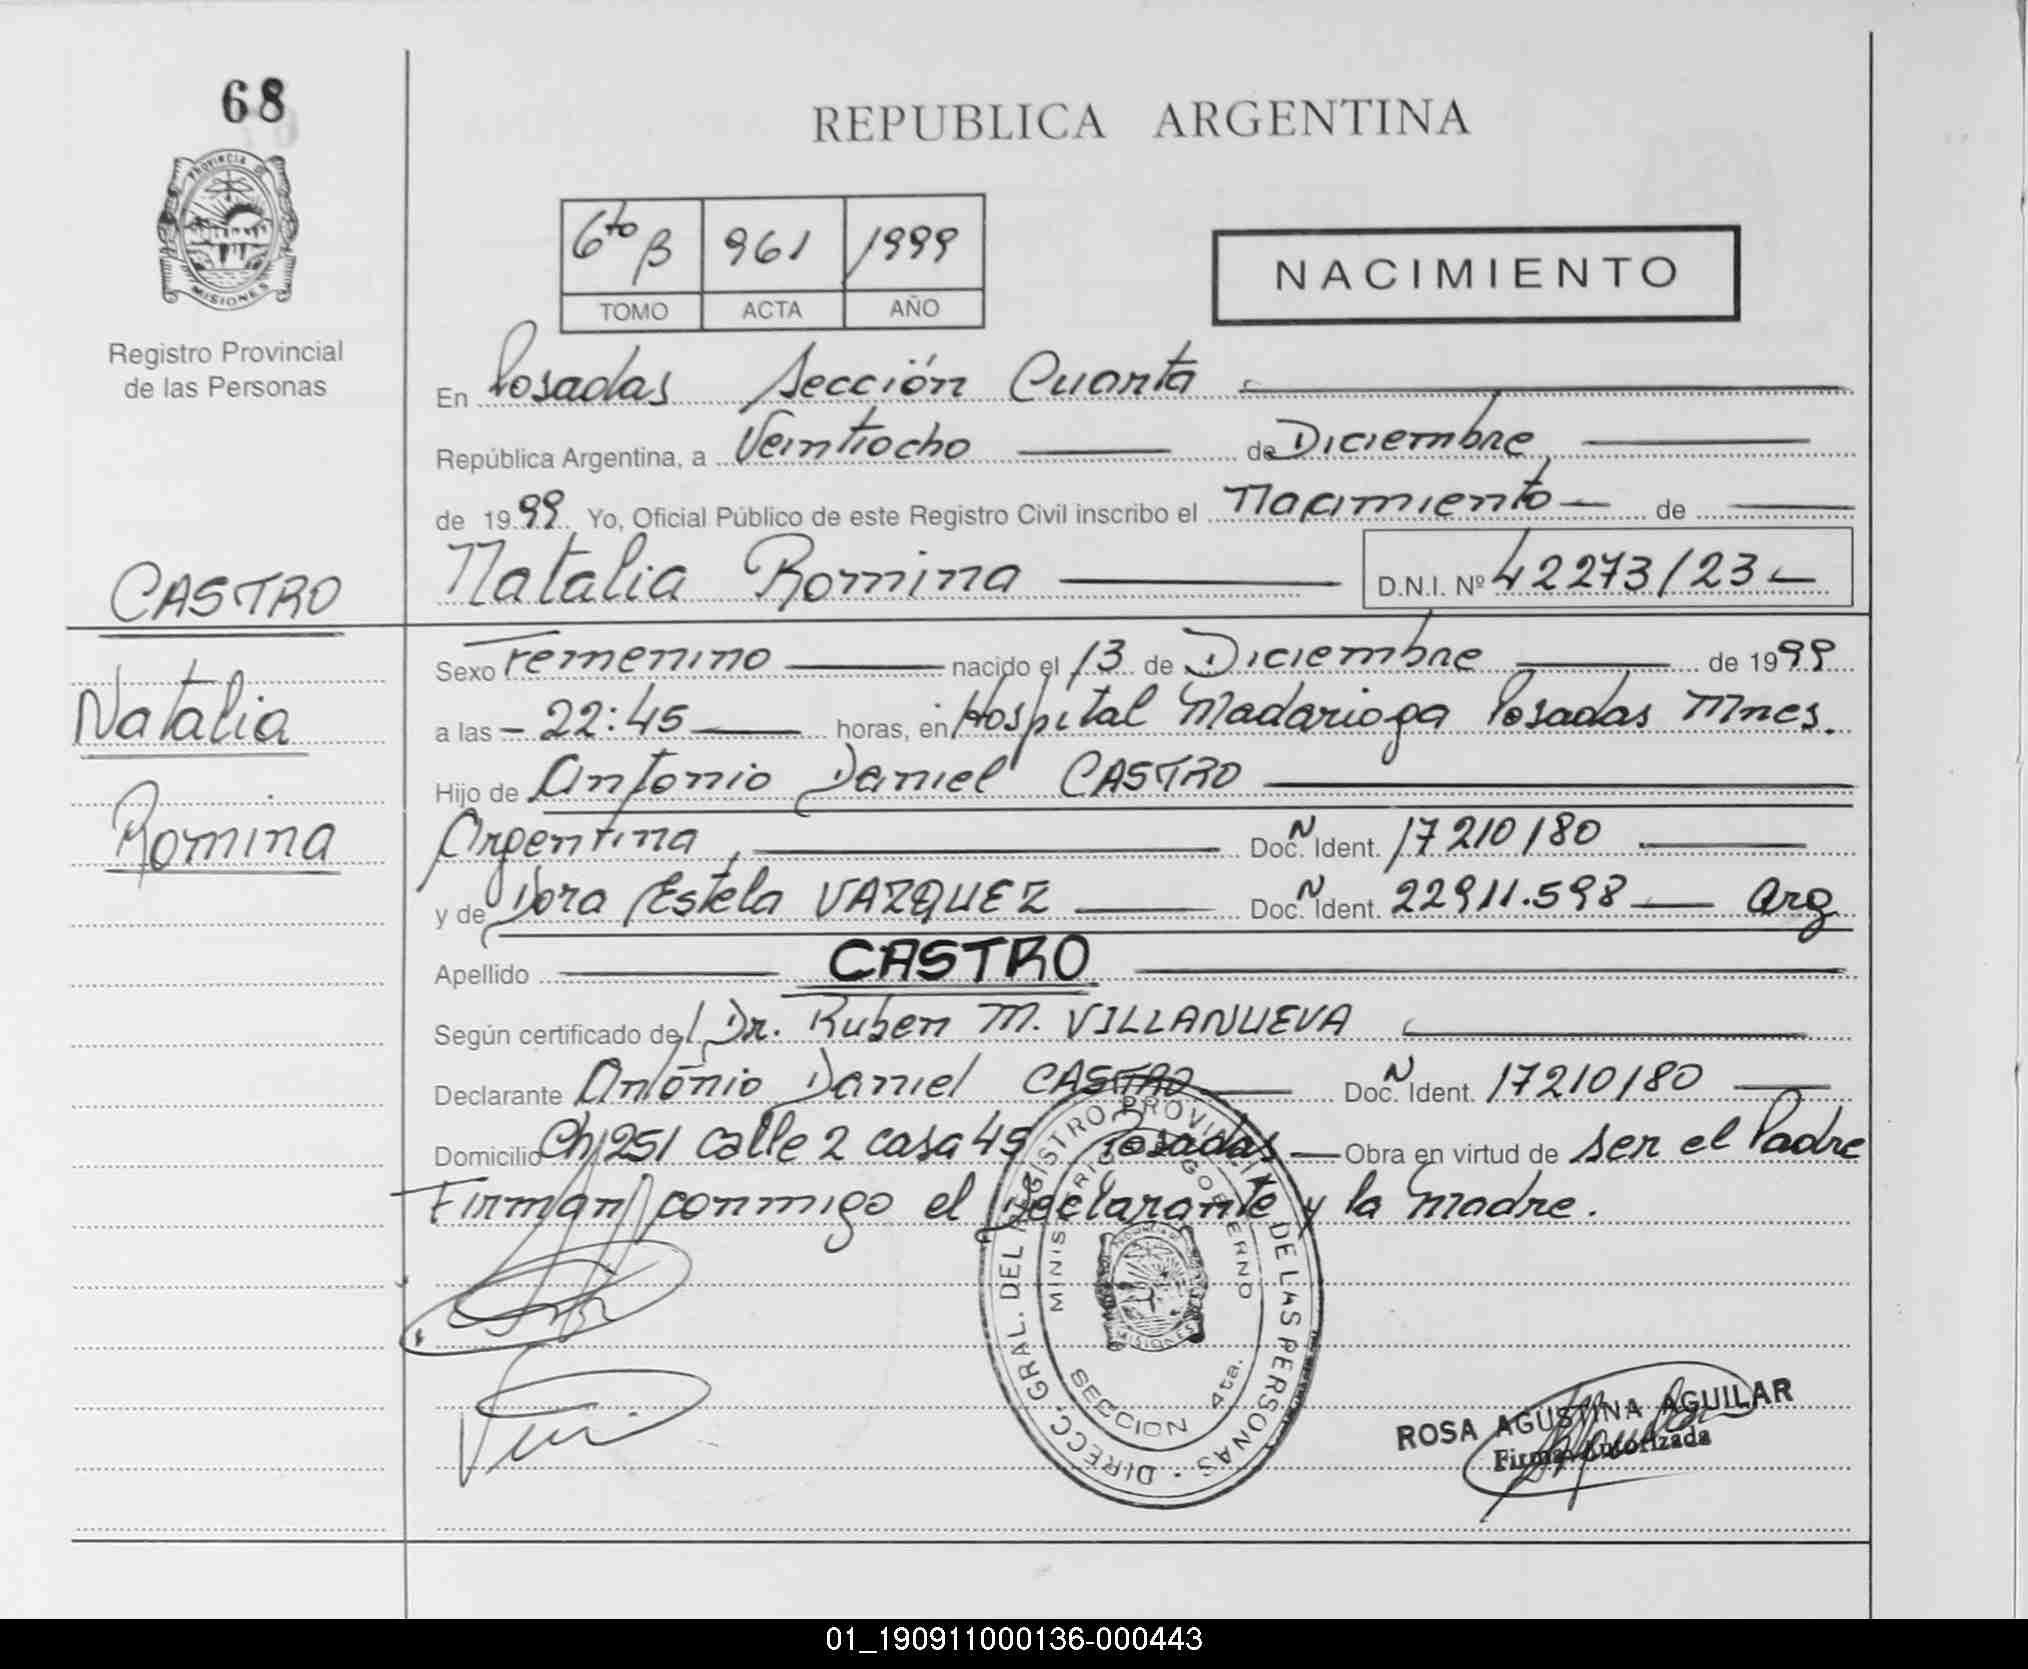 68
REPUBLICA ARGENTINA
PROVINCIA DE
MISIONES
Registro Provincial
de las Personas
6to B 961 1999
TOMO ACTA AÑO
NACIMIENTO
En Posadas Sección Cuarta
República Argentina, a Veintiocho de Diciembre
de 1999 Yo, Oficial Público de este Registro Civil inscribo el Nacimiento de
CASTRO
Natalia Romina D.N.I. Nº 42273123
Natalia
Romina
Sexo Femenino nacido el 13 de Diciembre de 1999
a las - 22:45 horas, en Hospital Madariaga Posadas Mnes.
Hijo de Antonio Daniel CASTRO
Argentina, Doc. N Ident. 17210180
y de Dora Estela VAZQUEZ Doc. N Ident. 22911.598 Arg
Apellido CASTRO
Según certificado del Dr. Ruben M. VILLANUEVA
Declarante Antonio Daniel CASTRO Doc. N Ident. 17210180
Domicilio Ch 251 Calle 2 casa 45 Posadas Obra en virtud de ser el Padre
Firman conmigo el Declarante y la madre.
DIRECC. GRAL. DEL REGISTRO PROVINCIAL DE LAS PERSONAS
MINISTERIO DE GOBIERNO
MISIONES
SECCION 4ta.
ROSA AGUSTINA AGUILAR
Firma Autorizada
01_190911000136-000443